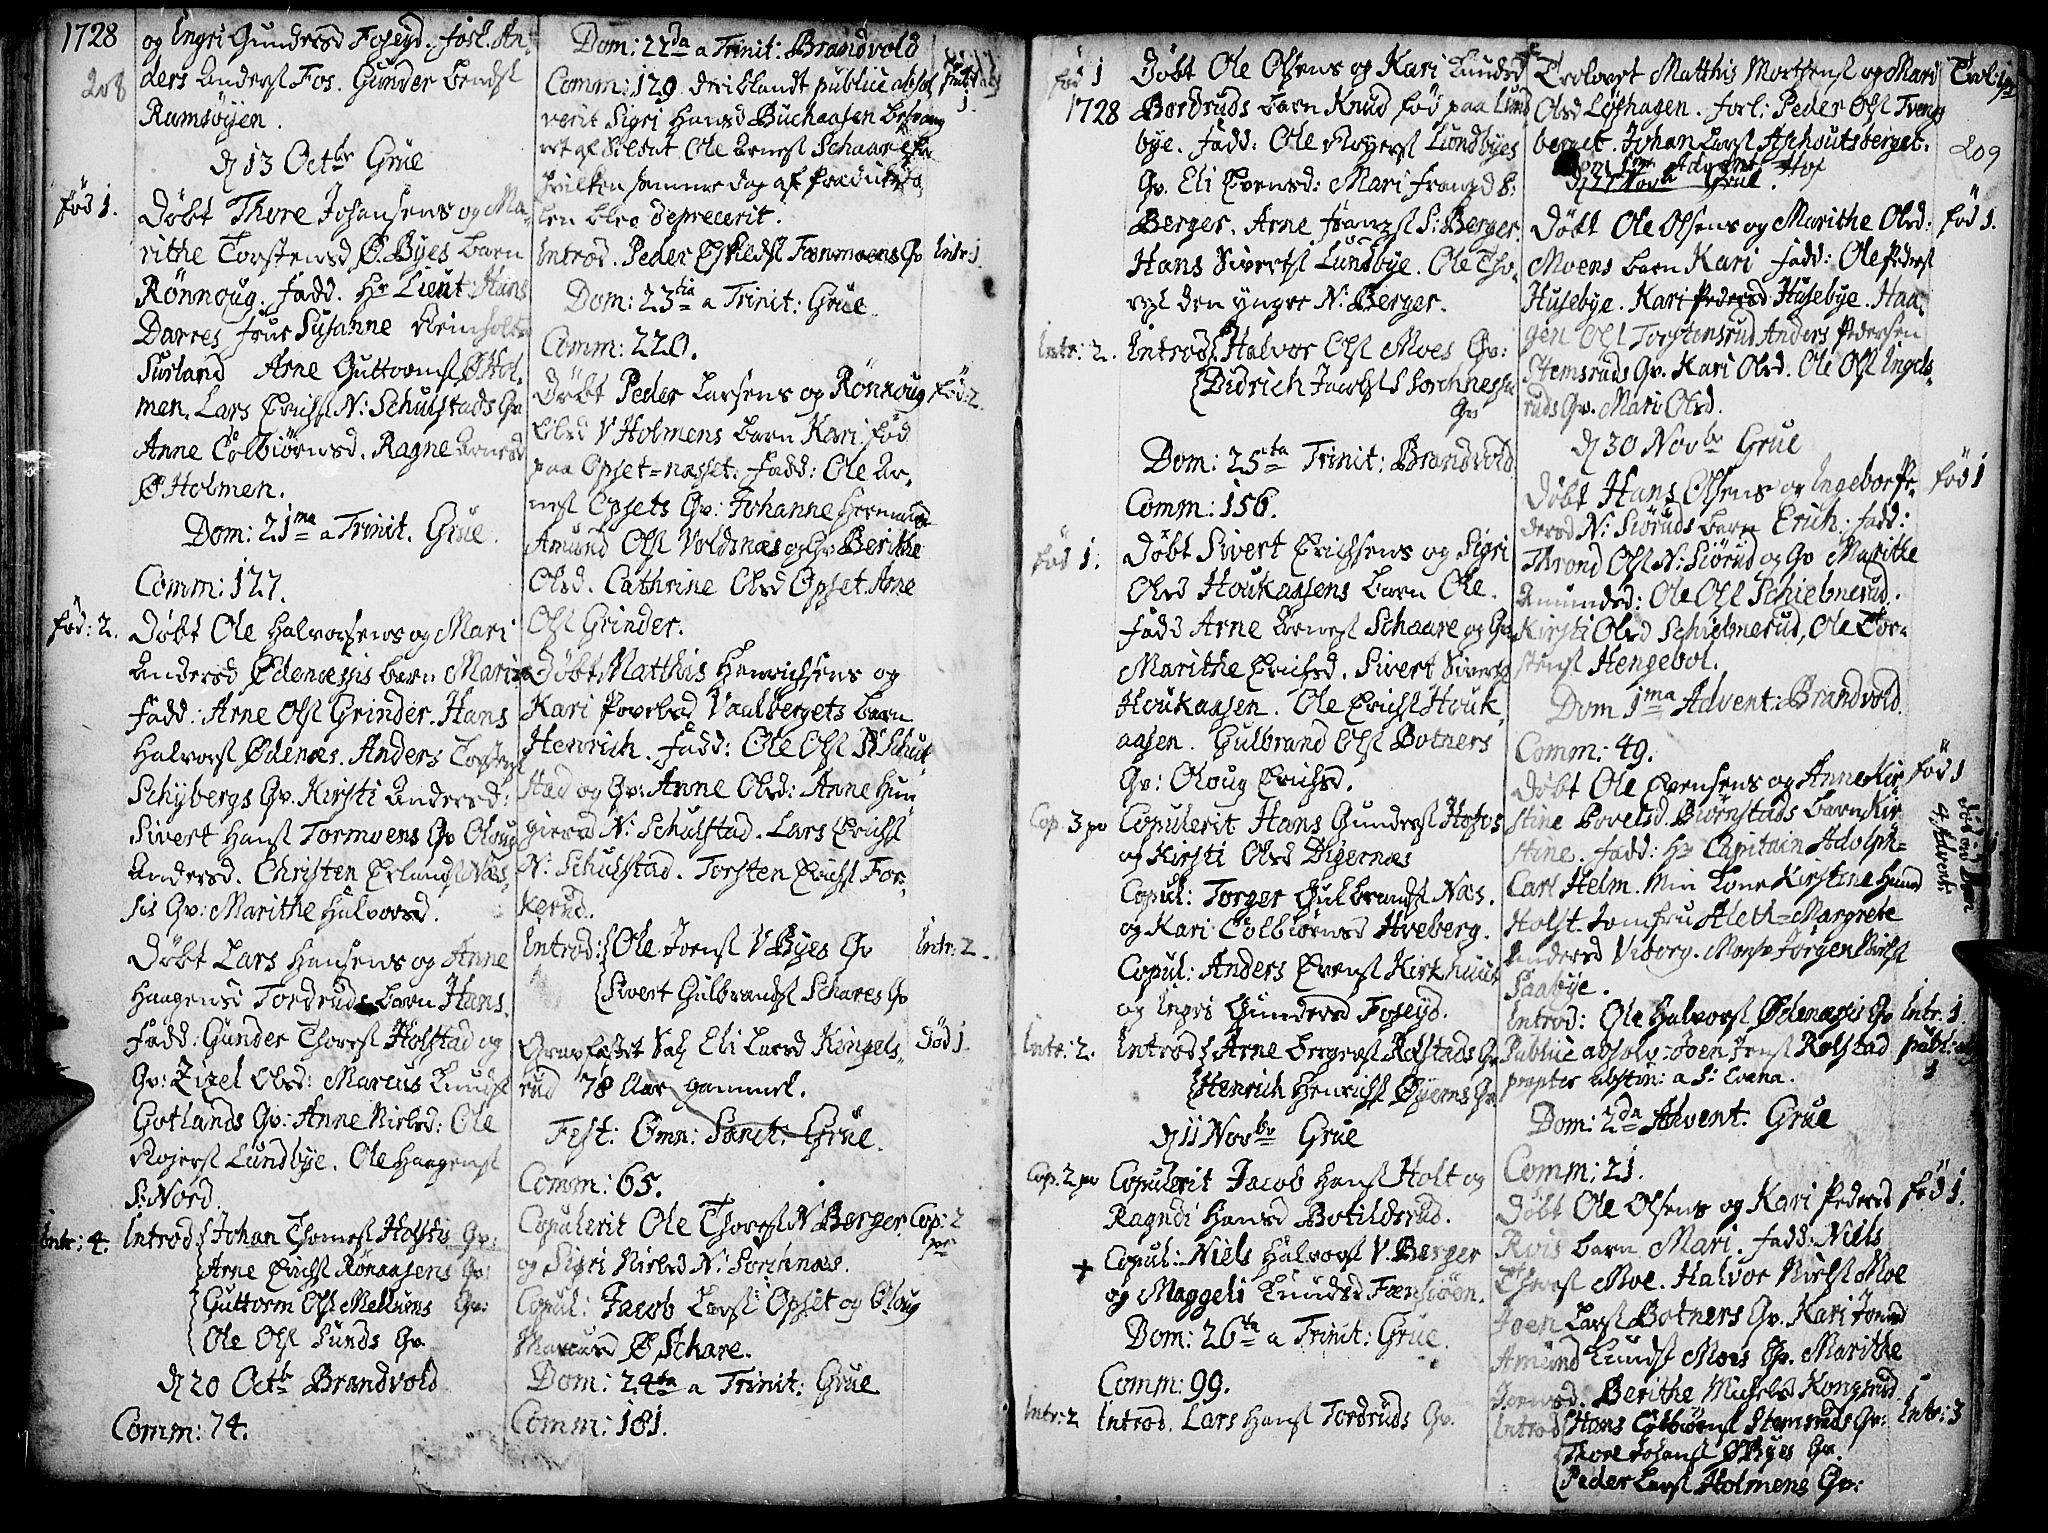 1728
208
og Ingri Gundersd Foseyd. forl. An-
ders Anders. Fos. Gunder
Ramsøyen.
d 13 Octbr Grue
fød 1.
Døbt Thore Johansens og Ma-
rithe Torstensd Ø. Byes barn
Rønnoug. Fadd. Hr Lieut: Hans
Darres frue Susanne
Surland Arne Guttormss Ø Hol-
men. Lars Erichs. N: Schulstads Qv
Anne Colbiørnsd. Ragne Arnesd
Ø Holmen.
Dom: 21ma a Trinit. Grue.
Comm: 127.
fød: 2.
Døbt Ole Halvorsens og Mari
Andersd Ødenæssis barn Mari
Fadd: Arne Ols. Grinder. Hans
Halvors. Ødenæs. Anders Torstens.
Schybergs Qv. Kirsti Andersd:
Sivert Hans. Tormoens Qv Oloug
Andersd. Christen Erlands. Næs-
sis Qv: Marithe Halvorsd.
Døbt Lars Hansens og Anne
Haagensd Tordruds barn Hans.
Fadd: Gunder Thores. Holstad og
Qv: Zizel Olsd: Marcus Knuds.
Gotlands Qv: Anne Nielsd: Ole
Rojers. Lundbye. Ole Haagens.
S: Nord.
Intr: 4.
Introd: Johan Thomes. Holstis Qv:
Arne Erichs. Rønaasens Qv:
Guttorm Ols. Mellums Qv:
Ole Ols. Lunds Qv
d 20 Octb Brandvold
Comm: 74.
Dom: 22da a Trinit: Brandvold
Comm: 129 deriblandt publice absol
verit Sigri Hansd Buchaasen
af Soldat Ole Arnes. Schaare
hvilken samme dag af
blev deprecerit.
Introd. Peder Eskelds. Fænmoens Qv
Intr: 1.
Dom: 23tia a Trinit: Grue.
Comm: 220.
Døbt Peder Larsens og Rønnoug
fød: 2.
Olsd V Holmens barn Kari fød
paa Opset-næsset. Fadd: Ole Ar-
nes. Opsets Qv: Johanne Hermansd
Amund Ols. Voldsnæs og Qv Berithe
Olsd. Cathrine Olsd Opset Arne
Ols. Grinder.
Døbt Matthis Henrichsens og
Kari Povelsd Vaalbergets barn
Henrich. Fadd: Ole Ols. N Schul-
stad og Qv: Anne Olsd: Anne Hun-
giersd N: Schulstad. Lars Erichs.
N: Schulstad. Torsten Erichs. For-
kerud.
Introd: Ole Joens. V Byes Qv
Intr: 2.
Sivert Gulbrands. Schares Qv
Gravfæstet Sal Eli Larsd Kongels-
rud 78 Aar gammel.
Død 1.
Fest: Omn: Sanct: Grue.
Comm: 65.
Copulerit Ole Thores. N Berger
Cop: 2 pr
og Sigri Nielsd N: Sorchnæs.
Copul: Jacob Lars. Opset og Oloug
Marcusd Ø Schare.
Dom: 24ta a Trinit: Grue
Comm: 181.
fød 1
1728
Døbt Ole Olsens og Kari Knudsd
Bordruds barn Knud fød paa Lund
bye. Fadd: Ole Rojers. Lundbyes
Qv. Eli Evensd: Mari Franzd S:
Berger. Arne Franzs. S: Berger.
Hans Siverts. Lundbye. Ole Tho-
res. den yngre N: Berger.
Intr: 2.
Introd: Halvor Ols. Moes Qv:
Didrich Jacobs. S Sorchnes
Qv
Dom: 25ta Trinit: Brandvold
Comm: 156.
fød 1.
Døbt Sivert Erichsens og Sigri
Olsd Houkaasens barn Ole.
Fadd Arne Arnes. Schaare og Qv
Marithe Erichsd. Sivert Siverts.
Houkaasen. Ole Erichs. Houk-
aasen. Gulbrand Ols. Botners
Qv: Oloug Erichsd.
Cop. 3 pr
Copulerit Hans Gunders. Hofos
og Kirsti Olsd Digernæs
Copul: Torger Gulbrands. Næs.
og Kari Colbiørnsd Hveberg.
Copul: Anders Evens. Kirkhuus
og Ingri Gundersd Foseyd.
Intr: 2.
Introd: Arne Bergers. Rolstads Qv
Henrich Henrichs. Øyerns Qv
d 11 Novbr Grue
Cop. 2 pr
Copulerit Jacob Hans. Holt og
Ragndi Hansd Botildsrud.
+
Copul: Niels Halvors. V. Berger
og Maggeli Knudsd Fænsiøen.
Dom: 26ta a Trinit: Grue
Comm: 99.
Intr: 2
Introd. Lars Hans. Tordruds Qv.
Trolovet Matthis Mortens. og Mari
Trol: 1 pr
Olsd Løfhagen. forl: Peder Ols. Tveng
berget. Johan Lars. Aschoutsberget.
209
d 27 Novbr Grue.
Døbt Ole Olsens og Marithe Olsd:
fød 1.
Moens barn Kari Fadd: Ole Peders.
Husebye. Kari Pedersd Husebye. Haa-
gen Ols. Torstensrud Anders Pedersen
Stemsruds Qv. Kari Olsd. Ole Ols. Ingels-
ruds Qv. Mari Olsd.
d 30 Novbr Grue
Døbt Hans Olsens og Ingebor Pe-
fød 1
dersd N: Siøruds barn Erich. Fadd:
Thrond Ols. N: Siørud og Qv Marithe
Amundsd: Ole Ols. Schielmerud.
Kirsti Olsd Schielmerud, Ole Tor-
stens. Hengebol.
Dom 1ma Advent: Brandvold
Comm: 49.
Døbt Ole Evensens og Anne Kir-
fød 1
stine Povelsd. Biørnstads barn Kir-
stine. Fadd: Hr Capitain Adolph-
Carl Helm. Min Kone Kirstine Hansd
Holst. Jomfru Aleth-Margrete
Andersd Viborg. Monsr Jørgen Niels.
Saabye.
Introd: Ole Halvors. Ødenæssis Qv
Intr: 1.
Publice absolv: Joen Jens. Rolstad
publ: abs
1
propter abstin: a S: Coena.
Dom: 2da Advent. Grue
Comm: 21.
Døbt Ole Olsens og Kari Pedersd
fød 1.
Rvis barn Mari. Fadd: Niels
Thores. Moe. Halvor Niels. Moe
Joen Lars. Botners Qv. Kari Joensd
Amund Knuds. Moes Qv. Marithe
Joensd. Berithe Michelsd Kongsrud
Introd: Hans Colbiørns. Stemsruds Qv:
Intr: 3
Thore Johans. Ø Byes Qv.
Peder Lars. Holmens Qv: